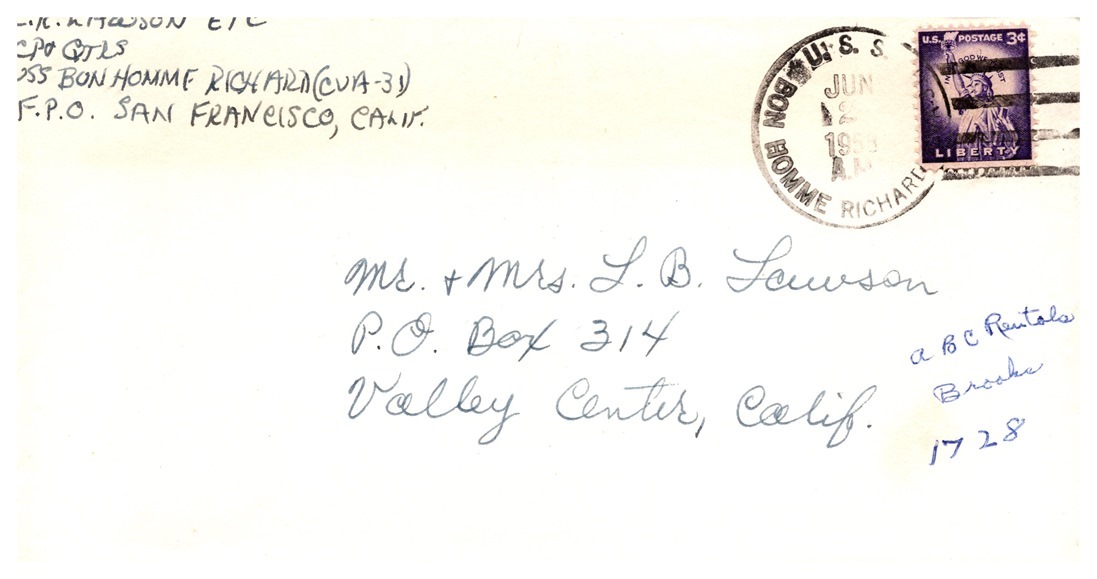 ETC
CPO QTRS
USS BON HOMME RICHARD (CVA-31)
F.P.O. SAN FRANCISCO, CALIF.
U. S. S.
BON HOMME RICHARD
JUN
2
195
A.M.
U.S. POSTAGE 3¢
IN GOD WE TRUST
LIBERTY
Mr. + Mrs. L. B. Lawson
P.O. Box 314
Valley Center, Calif.
A B C Rentals
Brooks
1728